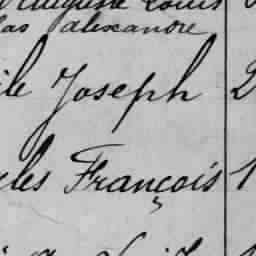 Auguste Louis
las alexandre
ile Joseph 2
rles François 1